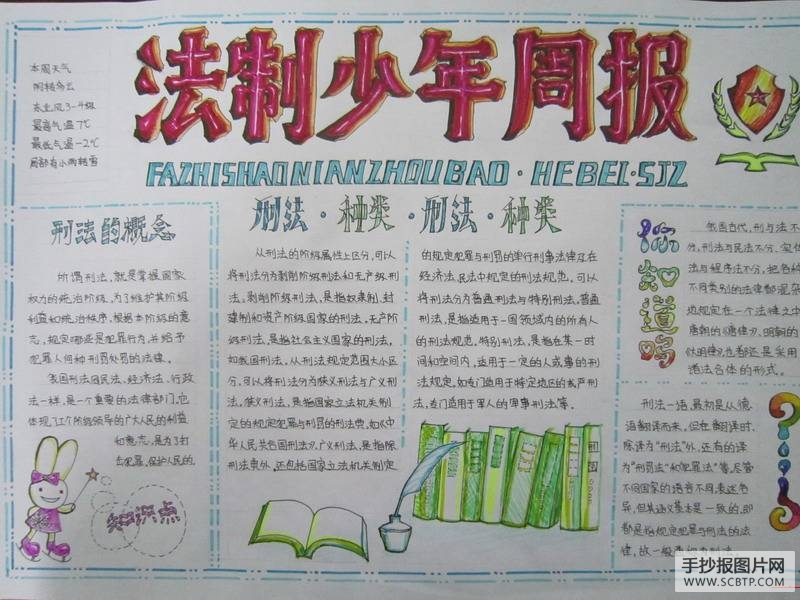 法制少年周报
FAZHISHAONIANZHOUBAO·HEBEI·SJZ
本周天气
阴转多云
东北风3-4级
最高气温7℃
最低气温-2℃
局部有小雨转雪
刑法的概念
所谓刑法，就是掌握国家
权力的统治阶级，为了维护其阶级
利益和统治秩序，根据本阶级的意
志，规定哪些是犯罪行为，并给予
犯罪人何种刑罚处罚的法律。
我国刑法同民法、经济法、行政
法一样，是一个重要的法律部门，它
体现了工人阶级领导的广大人民的利益
和意志，是为了打
击犯罪，保护人民的
知识点
刑法·种类·刑法·种类
从刑法的阶级属性上区分，可以
将刑法分为剥削阶级刑法和无产级刑
法，剥削阶级刑法，是指奴隶制、封
建制和资产阶级国家的刑法，无产阶
级刑法，是指社会主义国家的刑法，
如我国刑法。从刑法规定范围大小区
分，可以将刑法分为狭义刑法与广义刑
法。狭义刑法，是指国家立法机关制
定的规定犯罪与刑罚的刑法典，如《中
华人民共各国刑法》，广义刑法，是指除
刑法意外，还包括国家立法机关制定
的规定犯罪与刑罚的单行刑事法律及在
经济法、民法中规定的刑法规范。可以
将刑法分为普通刑法与特别刑法，普通
刑法，是指适用于一国领域内的所有人
的刑法规范，特别刑法，是指在某一时
间和空间内，适用于一定的人或事的刑
法规定，如专门适用于特定地区的戒严刑
法，专门适用于军人的军事刑法等。
刑
法
你知道吗
我国古代，刑与法不
分，刑法与民法不分、实体
法与程序法不分，把各种
不同类别的法律都混杂
地规定在一个法律之中
唐朝的《唐律》、明朝的
《大明律》，也都还是采用
诸法合体的形式。
刑法一语，最初是从德
语翻译而来，但在翻译时，
除译为“刑法”外，还有的译
为“刑罚法”和“犯罪法”等。尽管
不同国家的语言不同，表达各
异，但其涵义基本是一致的，即
都是指规定犯罪与刑法的法
律，故一般
手抄报图片网
WWW.SCBTP.COM